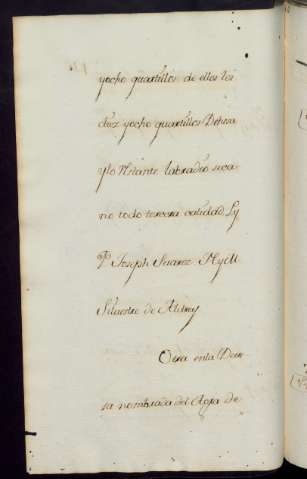 yocho quartillos de ellos los
diez yocho quartillos Dehesa
ylo restante labradio seca
no todo tercera calidad L y
P. Joseph Suarez N y M
Silvestre de
Otra enla Dehe
sa nombrada del Rega de